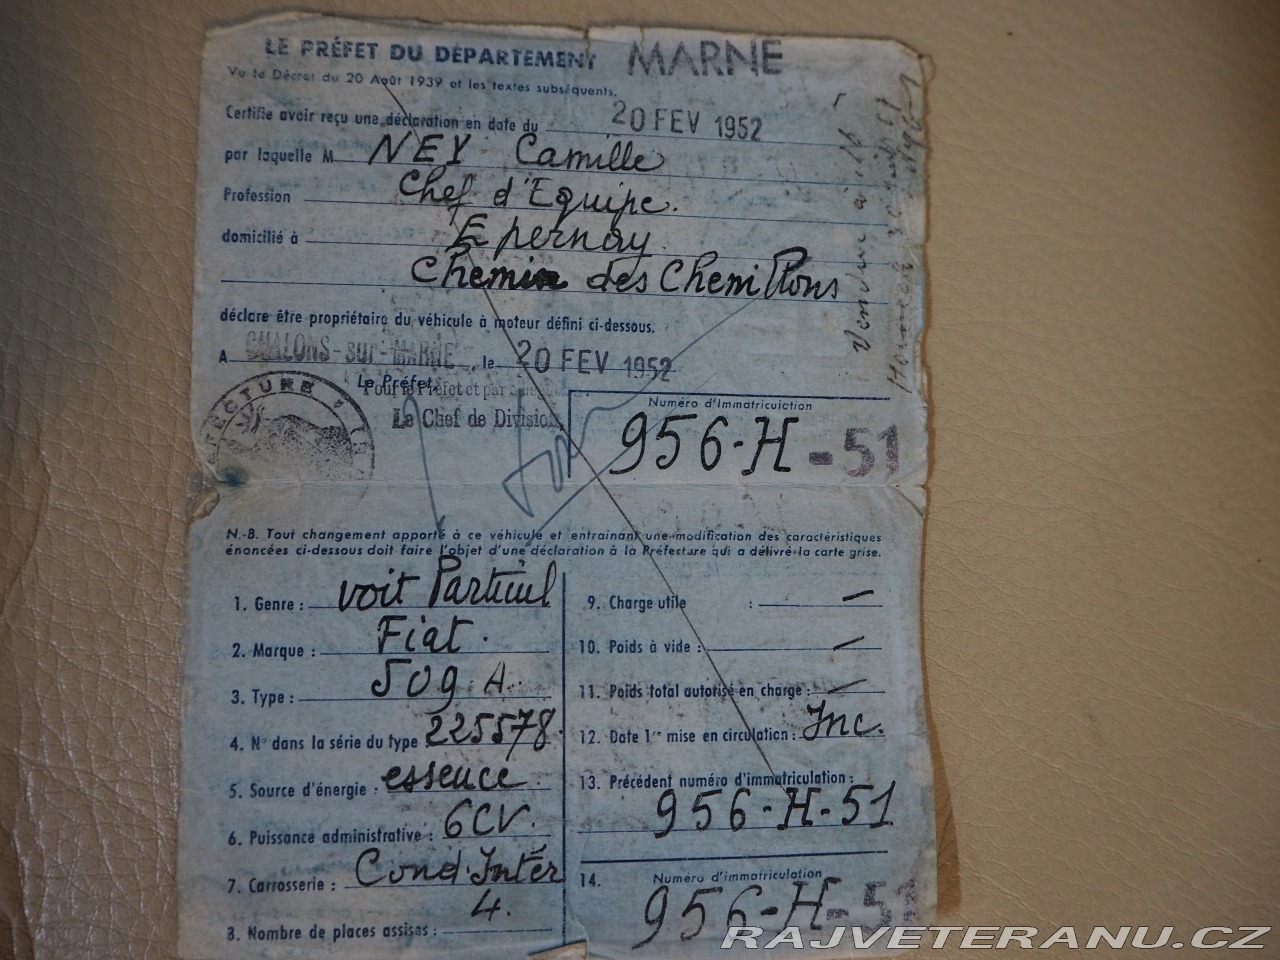 LE PRÉFET DU DÉPARTEMENT MARNE
Vu le Décret du 20 Août 1939 et les textes subséquents,
Certifie avoir reçu une déclaration en date du 20 FEV 1952
par laquelle M NEY Camille
Profession Chef d'Equipe.
domicilié à Epernay
Chemin des Chenillons
déclare être propriétaire du véhicule à moteur défini ci-dessous.
A CHALONS-sur-MARNE, le 20 FEV 1952
Le Préfet,
Pour le Préfet et par
Le Chef de Division,
Numéro d'Immatriculation
956-H-51
N.-B. Tout changement apporté à ce véhicule et entraînant une modification des caractéristiques
énoncées ci-dessous doit faire l'objet d'une déclaration à la Préfecture qui a délivré la carte grise.
1. Genre : voit Particul
2. Marque : Fiat.
3. Type : 509 A.
4. N° dans la série du type 225578.
5. Source d'énergie : essence.
6. Puissance administrative : 6CV.
7. Carrosserie : Cond. Inter
8. Nombre de places assises : 4.
9. Charge utile : —
10. Poids à vide : —
11. Poids total autorisé en charge : —
12. Date 1re mise en circulation : Inc.
13. Précédent numéro d'immatriculation :
956-H-51
14. Numéro d'immatriculation
956-H-51
RAJVETERANU.CZ